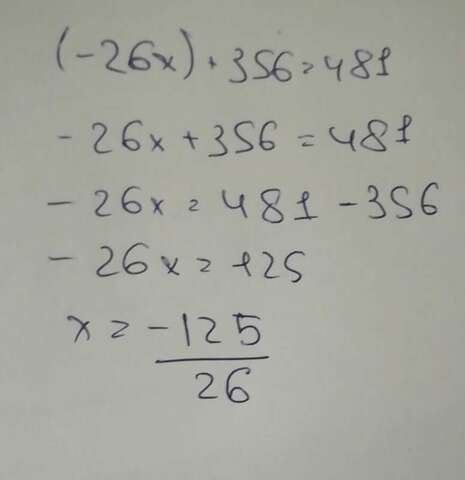 (-26x)+356=481
-26x+356=481
-26x=481-356
-26x=125
x=-125/26